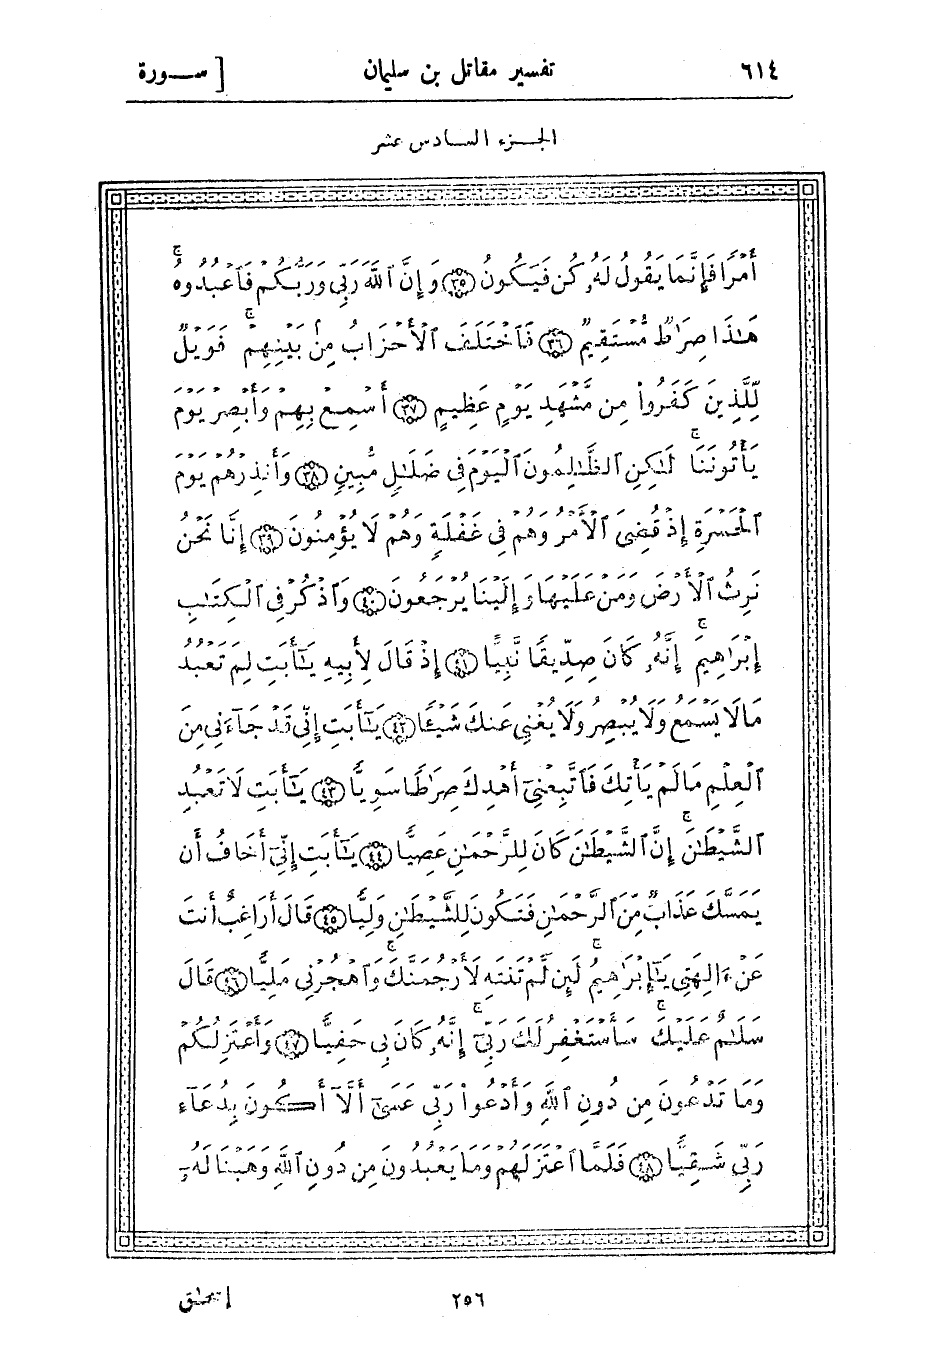 ٦١٤ تفسير مقاتل بن سليمان [ ســورة
الجـزء السـادس عشر
أَمْرًا فَإِنَّمَا يَقُولُ لَهُۥ كُن فَيَكُونُ ﴿٣٥﴾ وَإِنَّ ٱللَّهَ رَبِّى وَرَبُّكُمْ فَٱعْبُدُوهُ ۚ
هَـٰذَا صِرَٰطٌ مُّسْتَقِيمٌ ﴿٣٦﴾ فَٱخْتَلَفَ ٱلْأَحْزَابُ مِنۢ بَيْنِهِمْ ۚ فَوَيْلٌ
لِّلَّذِينَ كَفَرُوا۟ مِن مَّشْهَدِ يَوْمٍ عَظِيمٍ ﴿٣٧﴾ أَسْمِعْ بِهِمْ وَأَبْصِرْ يَوْمَ
يَأْتُونَنَا ۚ لَـٰكِنِ ٱلظَّـٰلِمُونَ ٱلْيَوْمَ فِى ضَلَـٰلٍ مُّبِينٍ ﴿٣٨﴾ وَأَنذِرْهُمْ يَوْمَ
ٱلْحَسْرَةِ إِذْ قُضِىَ ٱلْأَمْرُ وَهُمْ فِى غَفْلَةٍ وَهُمْ لَا يُؤْمِنُونَ ﴿٣٩﴾ إِنَّا نَحْنُ
نَرِثُ ٱلْأَرْضَ وَمَنْ عَلَيْهَا وَإِلَيْنَا يُرْجَعُونَ ﴿٤٠﴾ وَٱذْكُرْ فِى ٱلْكِتَـٰبِ
إِبْرَٰهِيمَ ۚ إِنَّهُۥ كَانَ صِدِّيقًا نَّبِيًّا ﴿٤١﴾ إِذْ قَالَ لِأَبِيهِ يَـٰٓأَبَتِ لِمَ تَعْبُدُ
مَا لَا يَسْمَعُ وَلَا يُبْصِرُ وَلَا يُغْنِى عَنكَ شَيْـًٔا ﴿٤٢﴾ يَـٰٓأَبَتِ إِنِّى قَدْ جَآءَنِى مِنَ
ٱلْعِلْمِ مَا لَمْ يَأْتِكَ فَٱتَّبِعْنِىٓ أَهْدِكَ صِرَٰطًا سَوِيًّا ﴿٤٣﴾ يَـٰٓأَبَتِ لَا تَعْبُدِ
ٱلشَّيْطَـٰنَ ۖ إِنَّ ٱلشَّيْطَـٰنَ كَانَ لِلرَّحْمَـٰنِ عَصِيًّا ﴿٤٤﴾ يَـٰٓأَبَتِ إِنِّىٓ أَخَافُ أَن
يَمَسَّكَ عَذَابٌ مِّنَ ٱلرَّحْمَـٰنِ فَتَكُونَ لِلشَّيْطَـٰنِ وَلِيًّا ﴿٤٥﴾ قَالَ أَرَاغِبٌ أَنتَ
عَنْ ءَالِهَتِى يَـٰٓإِبْرَٰهِيمُ ۖ لَئِن لَّمْ تَنتَهِ لَأَرْجُمَنَّكَ ۖ وَٱهْجُرْنِى مَلِيًّا ﴿٤٦﴾ قَالَ
سَلَـٰمٌ عَلَيْكَ ۖ سَأَسْتَغْفِرُ لَكَ رَبِّىٓ ۖ إِنَّهُۥ كَانَ بِى حَفِيًّا ﴿٤٧﴾ وَأَعْتَزِلُكُمْ
وَمَا تَدْعُونَ مِن دُونِ ٱللَّهِ وَأَدْعُوا۟ رَبِّى عَسَىٰٓ أَلَّآ أَكُونَ بِدُعَآءِ
رَبِّى شَقِيًّا ﴿٤٨﴾ فَلَمَّا ٱعْتَزَلَهُمْ وَمَا يَعْبُدُونَ مِن دُونِ ٱللَّهِ وَهَبْنَا لَهُۥٓ
٢٥٦ إِسْحَـٰقَ